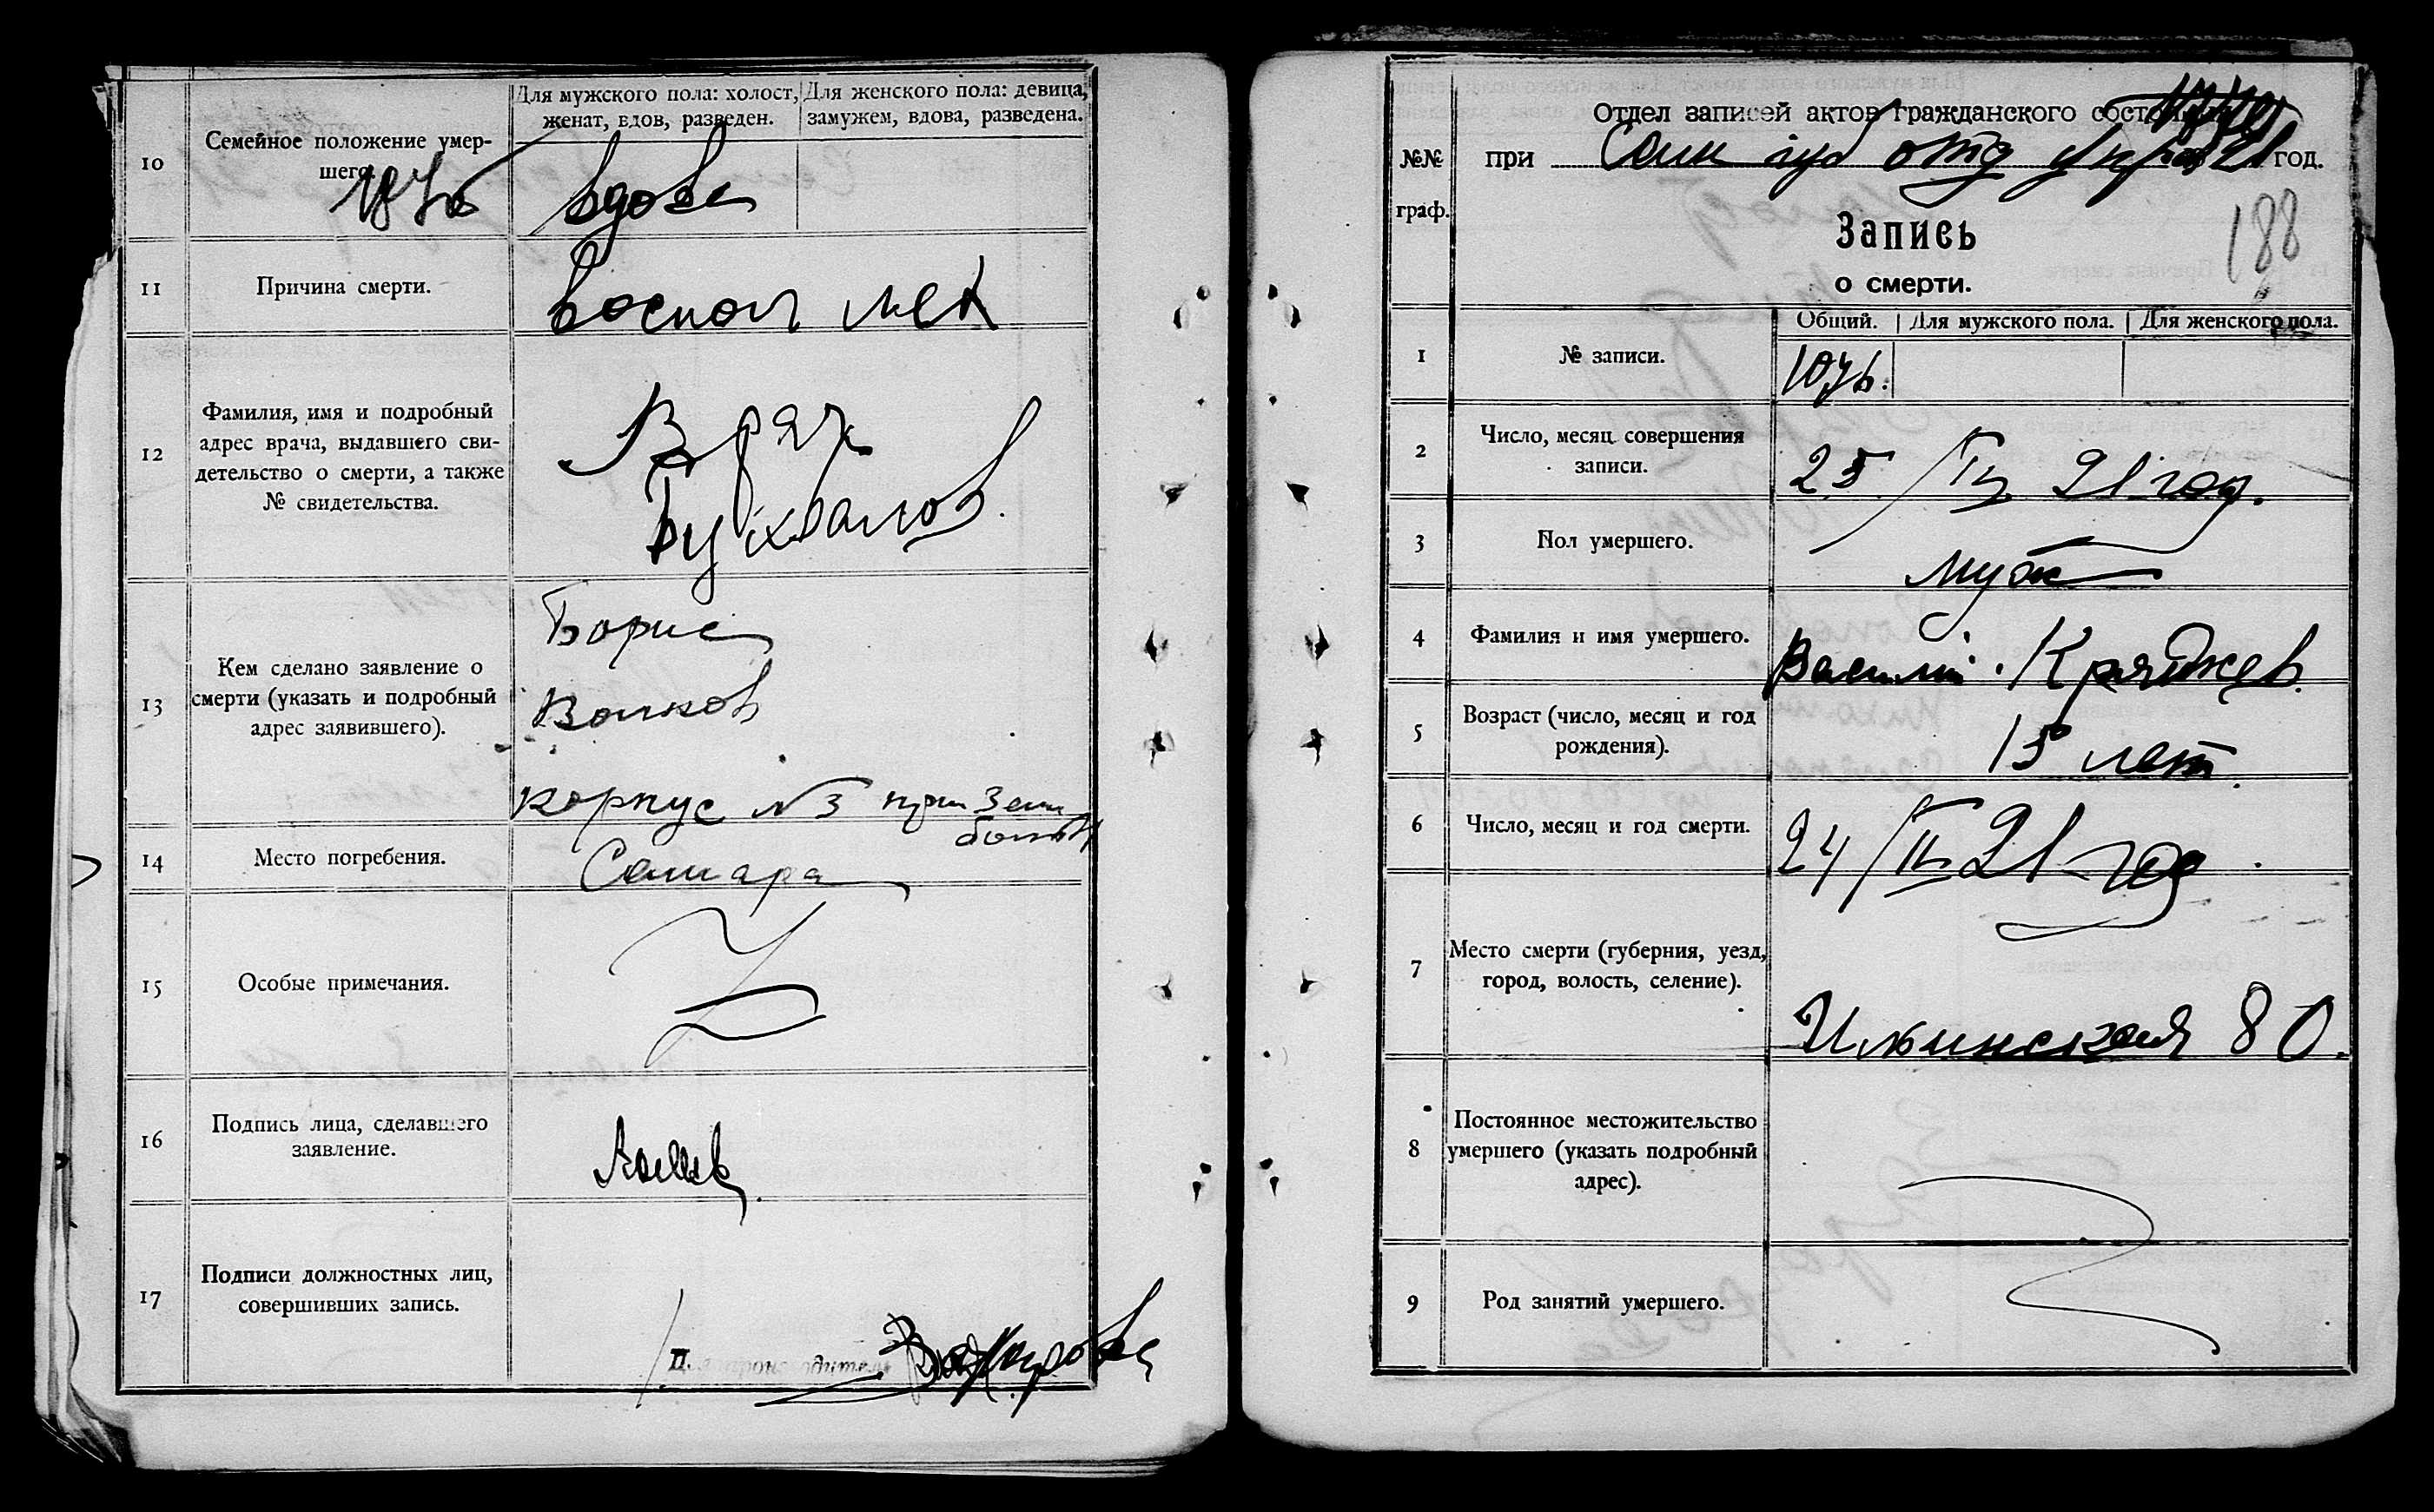 10
Семейное положение умер-
шего.
Для мужского пола: холост,
женат, вдов, разведен.
Для женского пола: девица,
замужем, вдова, разведена.
вдове
11
Причина смерти.
воспол лек
12
Фамилия, имя и подробный
адрес врача, выдавшего сви-
детельство о смерти, а также
№ свидетельства.
Врач
Бухвалов.
13
Кем сделано заявление о
смерти (указать и подробный
адрес заявившего).
Борис
Волков
Корпус №3 при Зем
больн
14
Место погребения.
Самара
15
Особые примечания.
16
Подпись лица, сделавшего
заявление.
17
Подписи должностных лиц,
совершивших запись.
№№
граф.
Отдел записей актов гражданского
при Сам губ отд упр 21 год.
188
Запись
о смерти.
Общий. Для мужского пола. Для женского пола.
1
№ записи.
1076.
2
Число, месяц совершения
записи.
25/II 21 год.
3
Пол умершего.
муж
4
Фамилия и имя умершего.
Василий Кряжев.
5
Возраст (число, месяц и год
рождения).
15 лет.
6
Число, месяц и год смерти.
24/II 21 год.
7
Место смерти (губерния, уезд,
город, волость, селение).
Ильинская 80.
8
Постоянное местожительство
умершего (указать подробный
адрес).
9
Род занятий умершего.